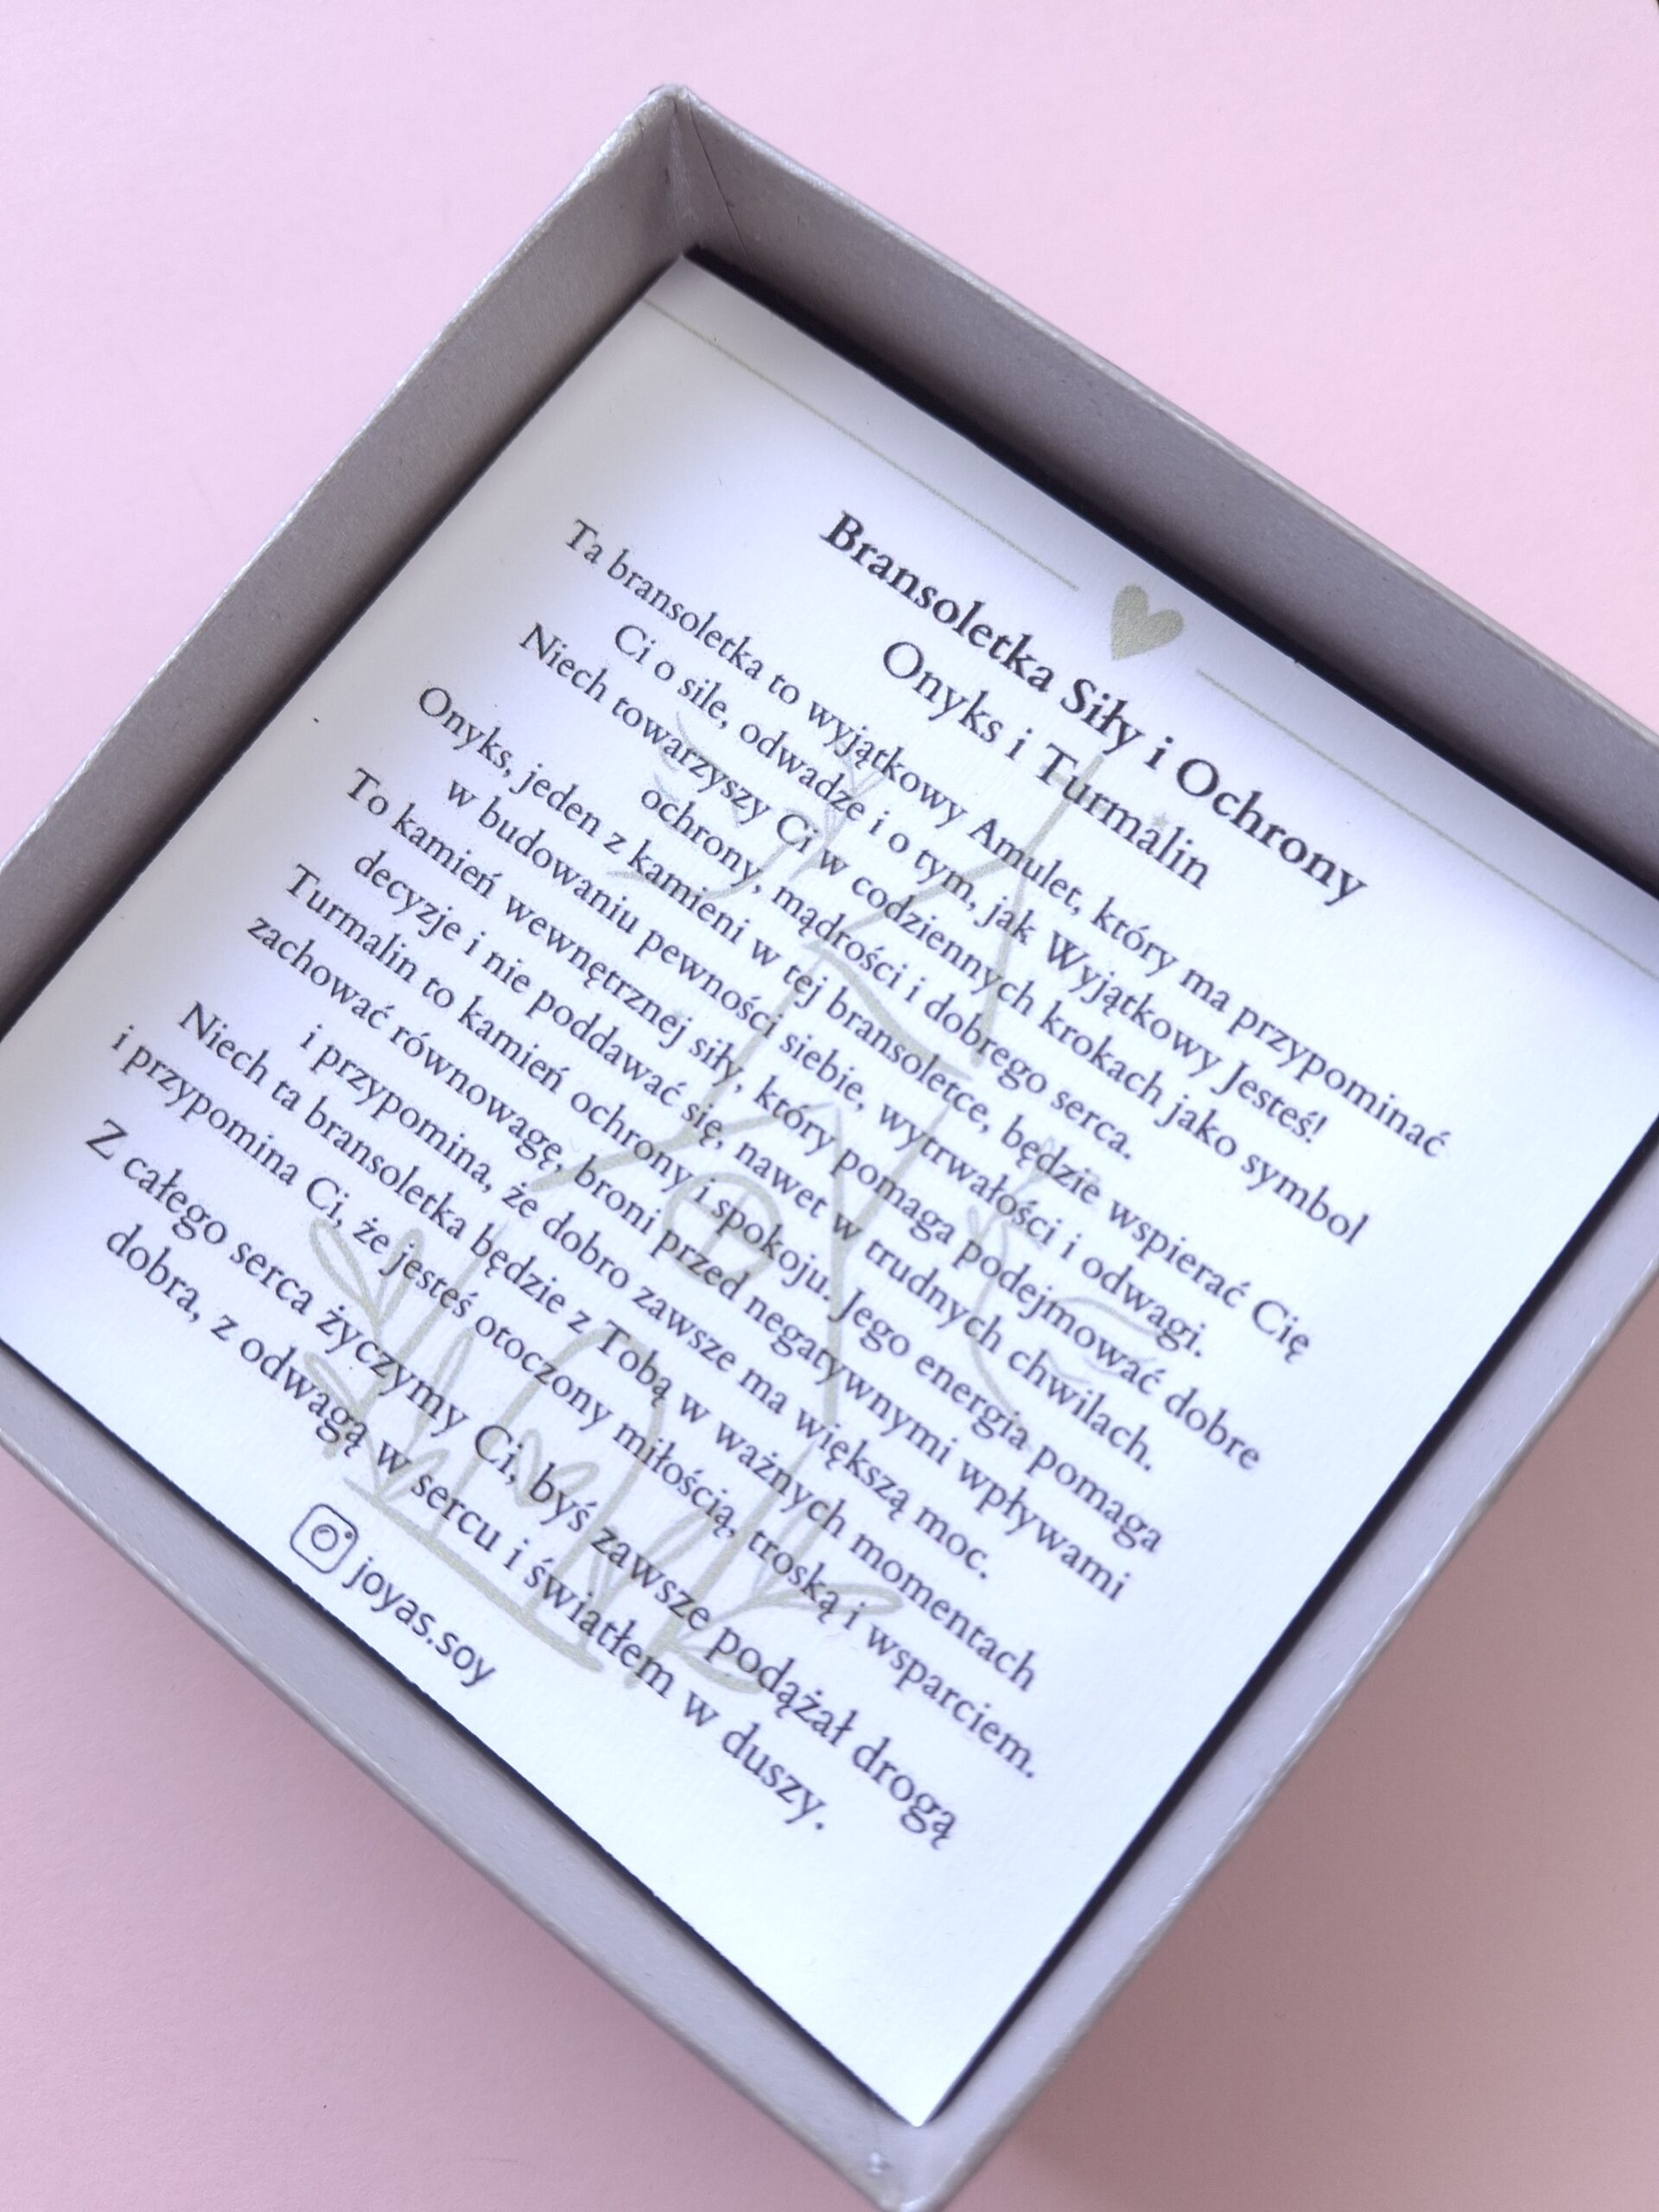 Bransoletka Siły i Ochrony
Onyks i Turmalin
Ta bransoletka to wyjątkowy Amulet, który ma przypominać
Ci o sile, odwadze i o tym, jak Wyjątkowy Jesteś!
Niech towarzyszy Ci w codziennych krokach jako symbol
ochrony, mądrości i dobrego serca.
Onyks, jeden z kamieni w tej bransoletce, będzie wspierać Cię
w budowaniu pewności siebie, wytrwałości i odwagi.
To kamień wewnętrznej siły, który pomaga podejmować dobre
decyzje i nie poddawać się, nawet w trudnych chwilach.
Turmalin to kamień ochrony i spokoju. Jego energia pomaga
zachować równowagę, broni przed negatywnymi wpływami
i przypomina, że dobro zawsze ma większą moc.
Niech ta bransoletka będzie z Tobą w ważnych momentach
i przypomina Ci, że jesteś otoczony miłością, troską i wsparciem.
Z całego serca życzymy Ci, byś zawsze podążał drogą
dobra, z odwagą w sercu i światłem w duszy.
joyas.soy